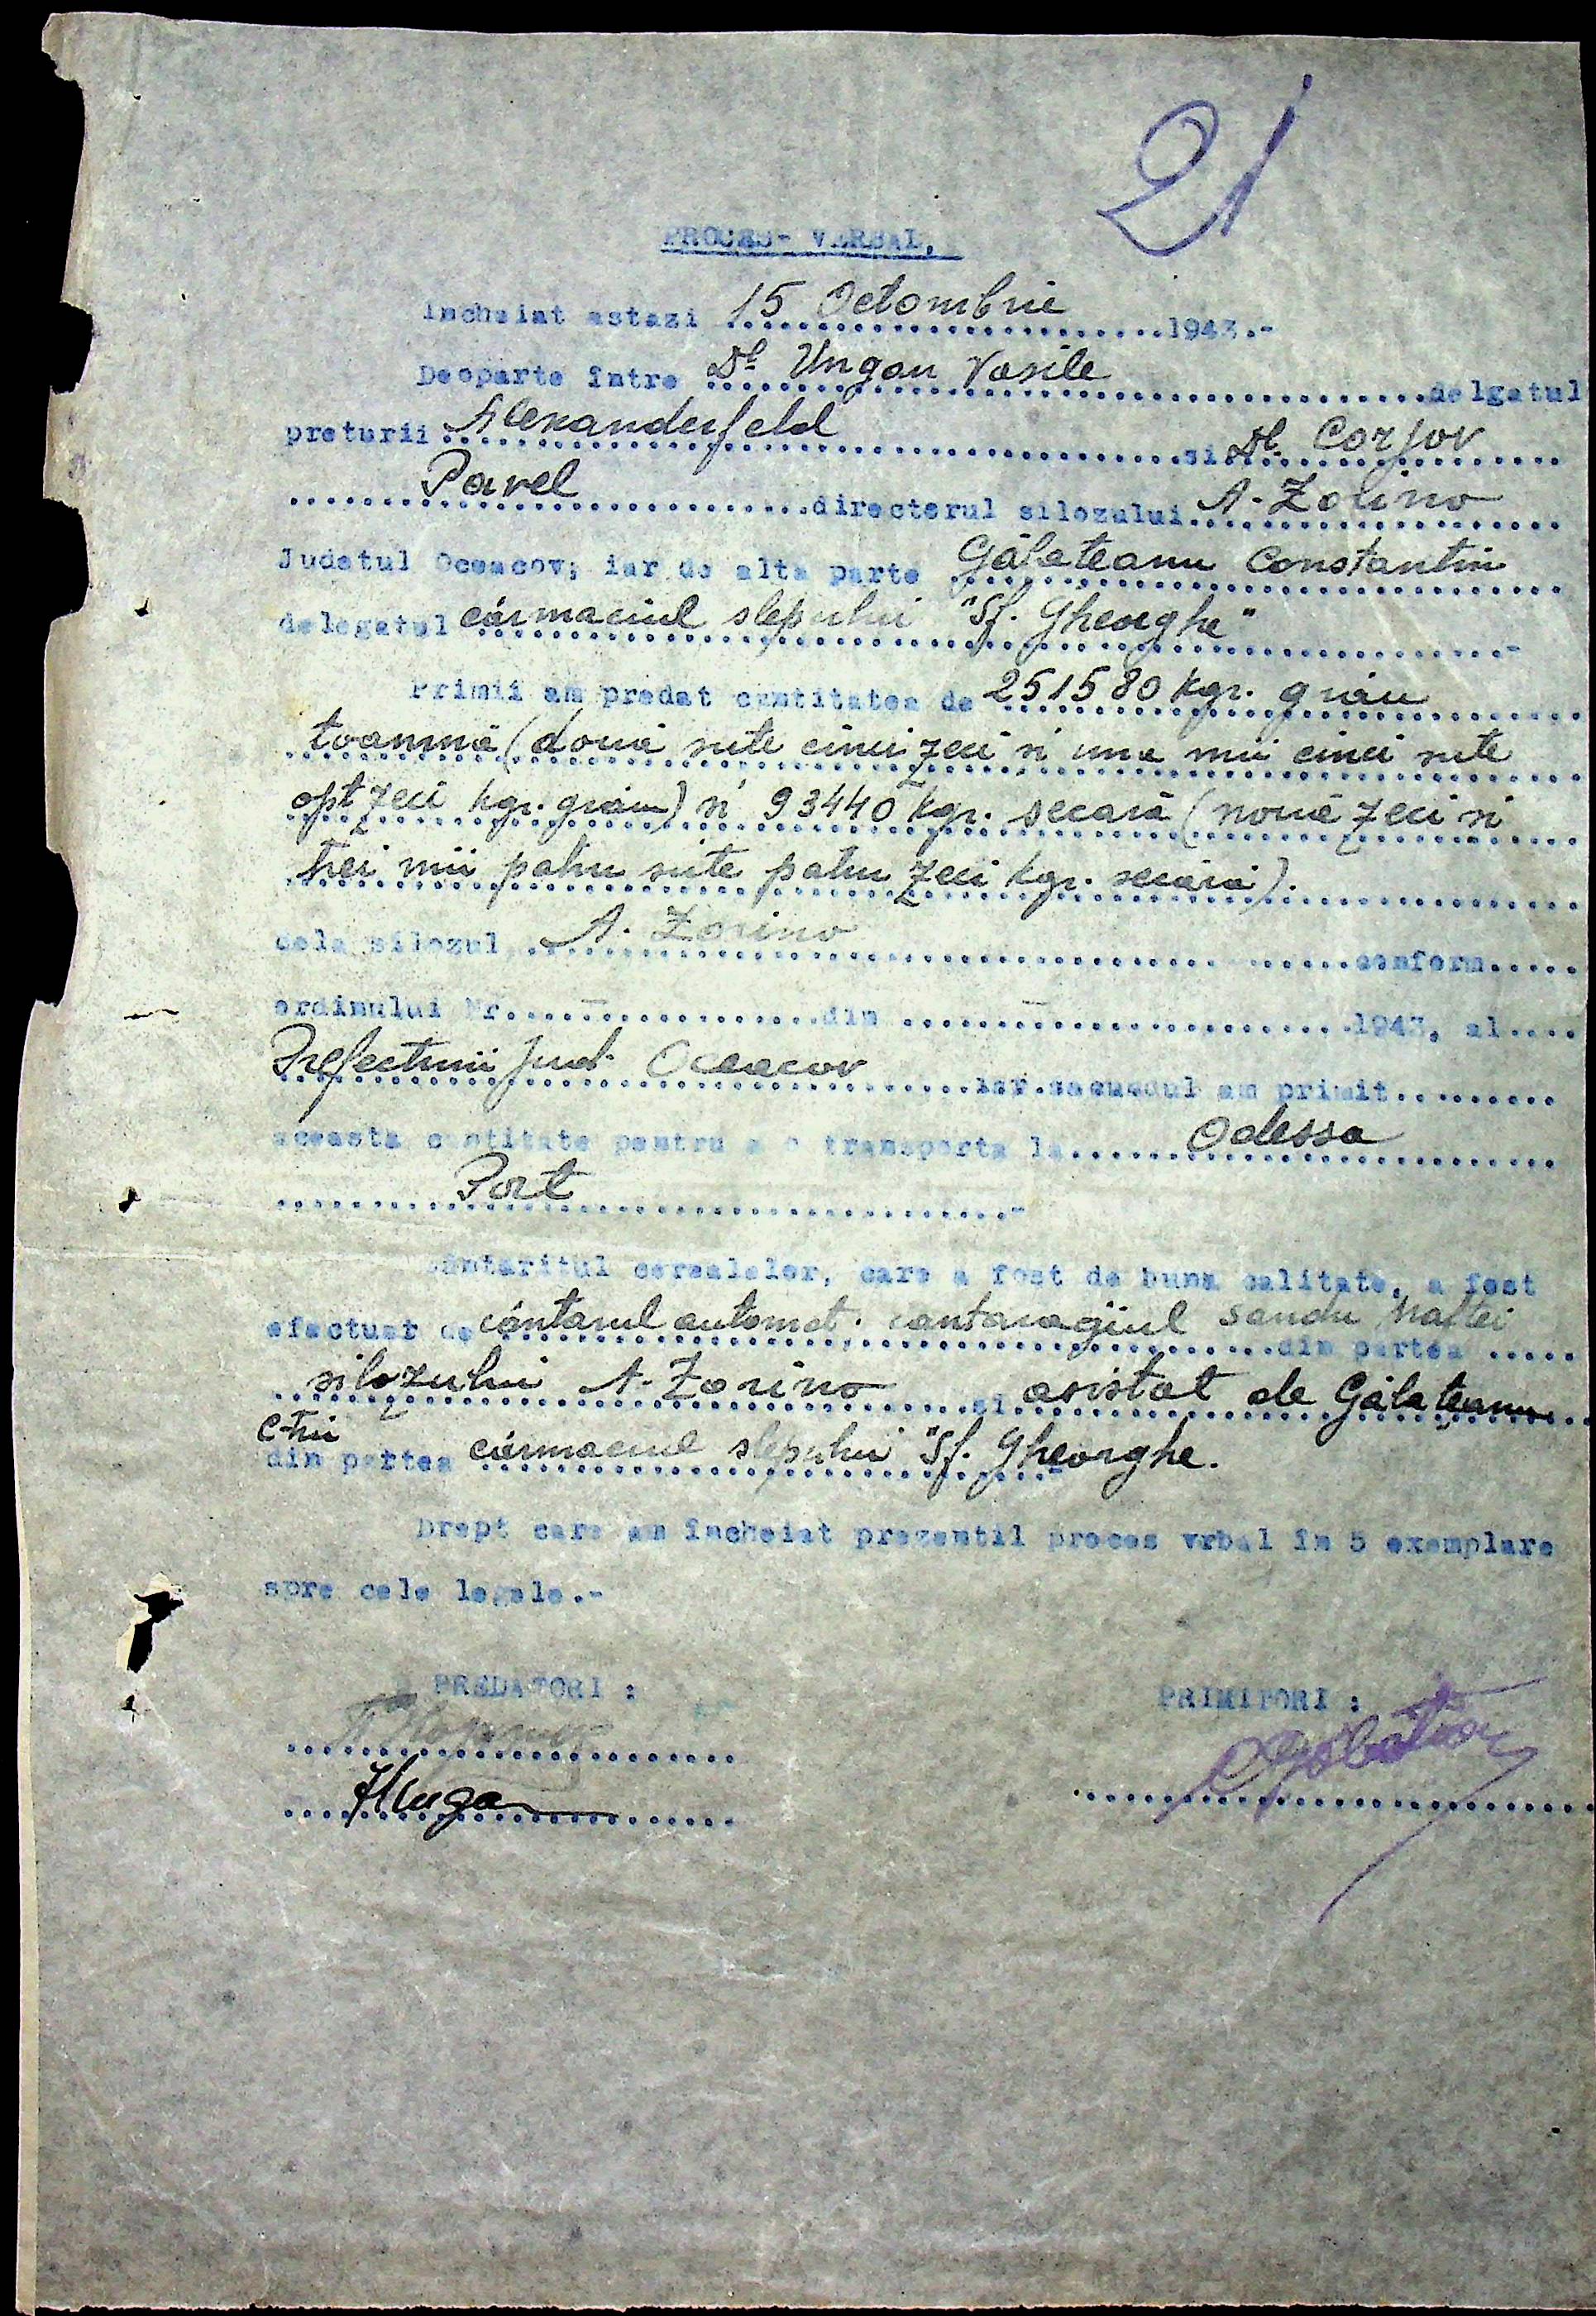 21
PROCES- VERBAL,
Incheiat astazi 15 Octombrie 1943.-
Deoparte intre Dl Ungan Vasile delgatul
preturii Alexanderfeld si Dl. Corjov
Pavel directorul silozului A-Zorino
Judetul Oceacov; iar de alta parte Gălațeanu Constantin
delegatul cârmaciul slepului "Sf. Gheorghe" -
Primii am predat cantitatea de 251580 kgr. grâu
toamnă (două sute cinci zeci si una mii cinci sute
opt zeci kgr. grâu) si 93440 kgr. secară (nouă zeci si
trei mii patru sute patru zeci kgr. secară).
dela silozul A. Zorino conform
ordinului Nr. — din — 1943, al
Prefecturii Jud. Oceacov iar secundul am primit
aceasta cantitate pentru a o transporta la Odessa
Port -
Cântaritul cerealelor, care a fost de buna calitate, a fost
efectuat de cântarul automat. cantaragiul Sandu Maftei din partea
silozului A-Zorino si asistat de Gălațeanu
C-tin
din partea cârmaciul slepului "Sf. Gheorghe.
Drept care am incheiat prezentil proces vrbal in 5 exemplare
spre cele legale.-
PREDATORI : PRIMITORI :